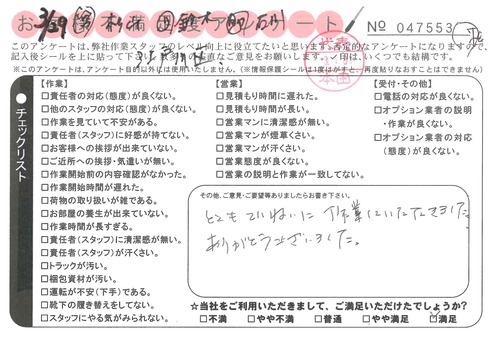 お客様アンケート
No 047553
このアンケートは、弊社作業スタッフのレベル向上に役立てたいと思います。否定的なアンケートになりますので、
記入後シールを上に貼って下さい。
※このアンケートは、アンケート目的以外には使用いたしません。(※情報保護シールは1度はがすと、再度貼りなおすことはできません)
チェックリスト
【作業】
□責任者の対応(態度)が良くない。
□他のスタッフの対応(態度)が良くない。
□作業を見ていて不安がある。
□責任者(スタッフ)に好感が持てない。
□お客様への挨拶が出来ていない。
□ご近所への挨拶・気遣いが無い。
□作業開始前の内容確認がなかった。
□作業開始時間が遅れた。
□荷物の取り扱いが雑である。
□お部屋の養生が出来ていない。
□作業時間が長すぎる。
□責任者(スタッフ)に清潔感が無い。
□責任者(スタッフ)が汗くさい。
□トラックが汚い。
□梱包資材が汚い。
□運転が不安(下手)である。
□靴下の履き替えをしてない。
□スタッフにやる気がみられない。
【営業】
□見積もり時間に遅れた。
□見積もり時間が長い。
□営業マンに清潔感が無い。
□営業マンが煙草くさい。
□営業マンが汗くさい。
□営業態度が良くない。
□営業の説明と作業が一致してない。
【受付・その他】
□電話の対応が良くない。
□オプション業者の説明
・作業が良くない。
□オプション業者の対応
(態度)が良くない。
その他、ご意見・ご要望等ありましたらお書き下さい。
とてもていねいに作業していただきました。
ありがとうございました。
☆当社をご利用いただきまして、ご満足いただけたでしょうか?
□不満 □やや不満 □普通 □やや満足 □満足